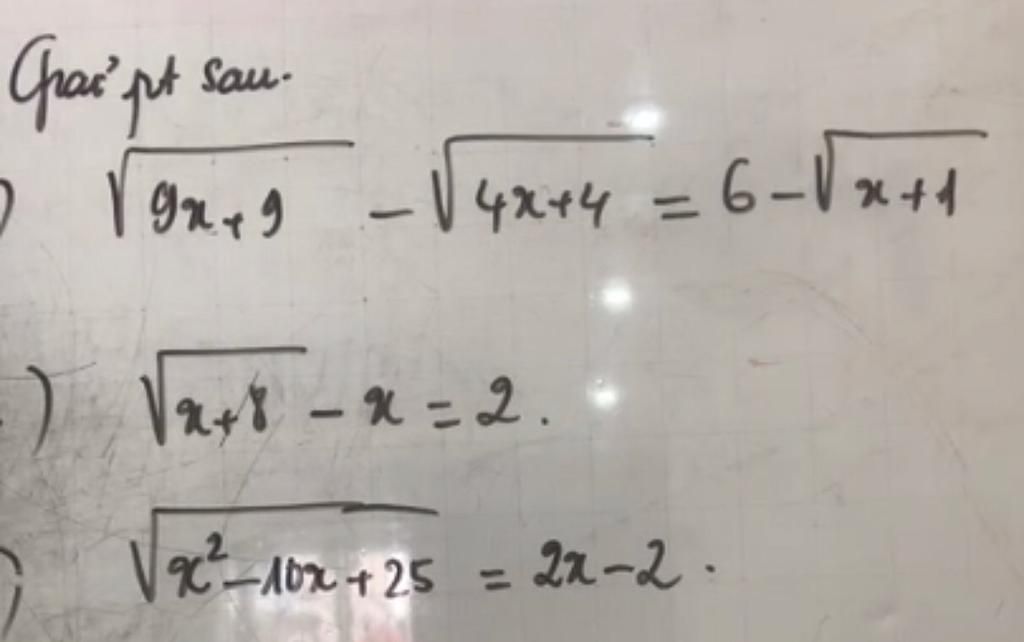 Giải pt sau.
) √(9x+9) - √(4x+4) = 6 - √(x+1)
) √(x+8) - x = 2.
) √(x²-10x+25) = 2x-2.